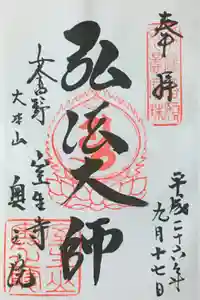 奉拝
平成二六年
九月十七日
弘法大師
女人高野
大本山
室生寺
奥之院